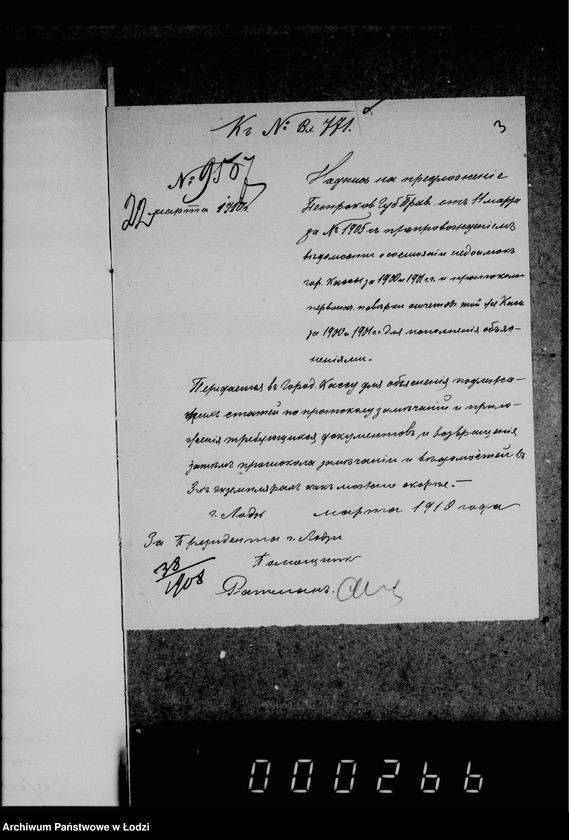 Къ № Вх 771.
3
№ 9567
22 марта 1910г.
Надпись на предложеніе
Петроков. Губ. Прав. отъ 11 марта
за № 1925 съ препровожденіемъ
вѣдомости о состояніи недоимокъ
гор. Кассы за 1900 и 1901 г.г. и протокола
первонач. повѣрки отчетовъ той же Кассы
за 1900 и 1901 г. для пополненія объяс-
неніями.
Передается въ Город. Кассу для объясненія подлежа-
щихъ статей по протоколу замѣчаній и прило-
женія требующихся документовъ, и возвращенія
затѣмъ протокола замѣчаній и вѣдомостей въ
3-хъ экземплярахъ какъ можно скорѣе.-
г. Лодзь марта 1910 года
За Президента г. Лодзи
Помощникъ
38/1908
Ратманъ.
000266
Archiwum Państwowe w Łodzi